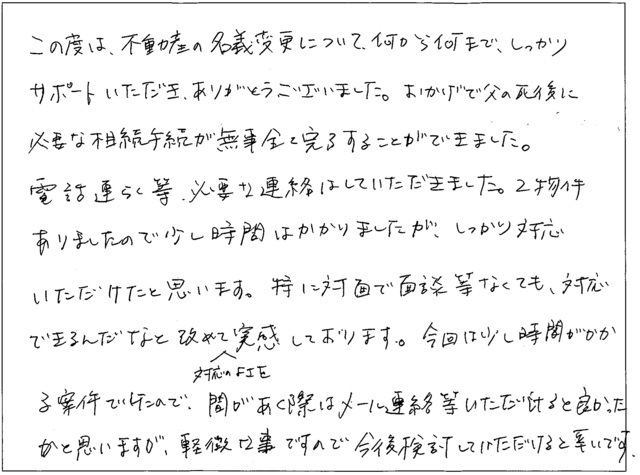 この度は、不動産の名義変更について、何から何まで、しっかり
サポートいただき、ありがとうございました。おかげで父の死後に
必要な相続手続が無事全て完了することができました。
電話連らく等、必要な連絡はしていただきました。2物件
ありましたので少し時間はかかりましたが、しっかり対応
いただけたと思います。特に対面で面談等なくても、対応
できるんだなと改めて実感しております。今回は少し時間がかか
対応のFIE
る案件でしたので、間があく際はメール連絡等いただけると良かった
かと思いますが、軽微な事ですので今後検討していただけると幸いです。